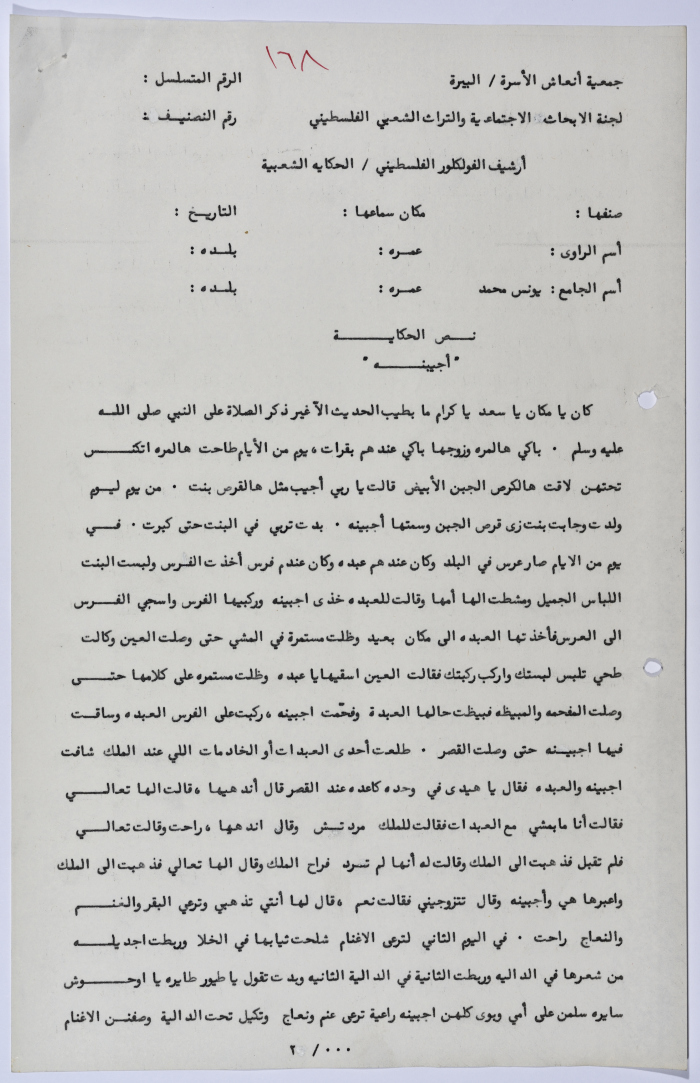 ١٦٨
جمعية أنعاش الأسرة / البيرة الرقم المتسلسل :
لجنة الابحاث الاجتماعية والتراث الشعبي الفلسطيني رقم التصنيف :
أرشيف الفولكلور الفلسطيني / الحكايه الشعبية
صنفها : مكان سماعها : التاريخ :
أسم الراوى : عمره : بلده :
أسم الجامع : يونس محمد عمره : بلده :
نص الحكاية
" أجبينه "
كان يا مكان يا سعد يا كرام ما بطيب الحديث الآ غير ذكر الصلاة على النبي صلى الله
عليه وسلم . باكي هالمره وزوجها باكي عندهم بقرات ، يوم من الأيام طاحت هالمره اتكنس
تحتهن لاقت هالكرص الجبن الأبيض قالت يا ربي أجيب مثل هالقرص بنت . من يوم ليوم
ولدت وجابت بنت زى قرص الجبن وسمتها أجبينه . بدت تربي في البنت حتى كبرت . في
يوم من الايام صار عرس في البلد وكان عندهم عبده وكان عندم فرس أخذت الفرس ولبست البنت
اللباس الجميل ومشطت الها أمها وقالت للعبده خذى اجبينه وركبيها الفرس واسجي الفرس
الى العرس فأخذتها العبده الى مكان بعيد وظلت مستمرة في المشي حتى وصلت العين وكالت
طحي تلبس لبستك واركب ركبتك فقالت العين اسقيها يا عبده وظلت مستمره على كلامها حتى
وصلت المفحمه والمبيظه فبيظت حالها العبدة وفحّمت اجبينه ، ركبت على الفرس العبده وساقت
فيها اجبينه حتى وصلت القصر . طلعت أحدى العبدات أو الخادمات اللي عند الملك شافت
اجبينه والعبده فقال يا هيدى في وحده كاعده عند القصر قال أندهيها ، قالت الها تعالي
فقالت أنا مابمشي مع العبدات فقالت للملك مردتش وقال اندهها ، راحت وقالت تعالي
فلم تقبل فذهبت الى الملك وقالت له أنها لم تسرد فراح الملك وقال الها تعالي فذهبت الى الملك
واعبرها هي وأجبينه وقال تتزوجيني فقالت نعم ، قال لها أنتي تذهبي وترعي البقر والغنم
والنعاج راحت . في اليوم الثاني لترعى الاغنام شلحت ثيابها في الخلا وربطت اجديله
من شعرها في الداليه وربطت الثانية في الدالية الثانيه وبدت تقول يا طيور طايره يا اوحوش
سايره سلمن على أمي وبوى كلهن اجبينه راعية ترعى غنم ونعاج وتكيل تحت الدالية وصفنن الاغنام
٠٠٠ / ٢